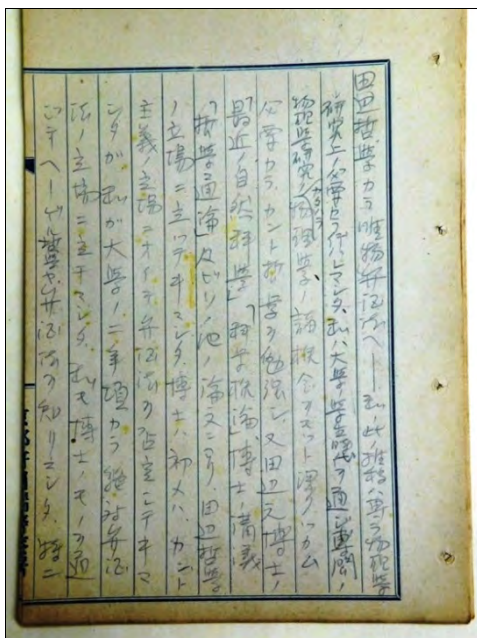 田辺哲学カラ唯物弁証法ヘ——私ノ此推移ハ専ラ物理学
研究上ノ必要カラ行ハレマシタ。私ハ大学学生時代ヲ通ジ
物理学研究ノ 物理学ノ諸概念ヲモット深クツカム
必要カラ、カント哲学ヲ勉強シ、又田辺元博士ノ
「最近ノ自然科学」「科学概論」博士ノ講義
「哲学通論」及ビソノ他ノ論文ニヨリ、田辺哲学
ノ立場ニ立ツテキマシタ。博士ハ初メハ、カント
主義ノ立場ニオイテ弁証法ヲ否定シテキマ
シタガ私ガ大学ノ二年頃カラ絶対弁証
法ノ立場ニ立チマシタ。私モ博士ノモノヲ通
ジテヘーゲル哲学ヤ弁証法ヲ知リマシタ。特ニ